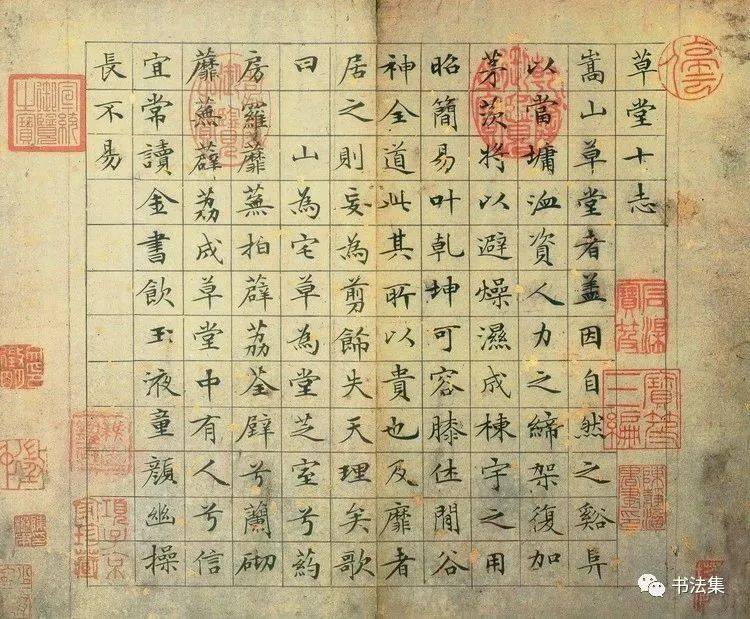 草堂十志
嵩山草堂者盖因自然之谿阜
以當墉洫資人力之締架復加
茅茨將以避燥濕成棟宇之用
昭簡易叶乾坤可容膝休閒谷
神全道此其所以貴也及靡者
居之則妄為剪飾失天理矣歌
曰 山為宅草為堂芝室兮葯
房羅蘼蕪拍薜荔荃壁兮蘭砌
蘼蕪薜荔成草堂中有人兮信
宜常讀金書飲玉液童顏幽操
長不易
石渠寶笈
寶笈三編
宣統御覽之寶
項子京家珍藏
书法集